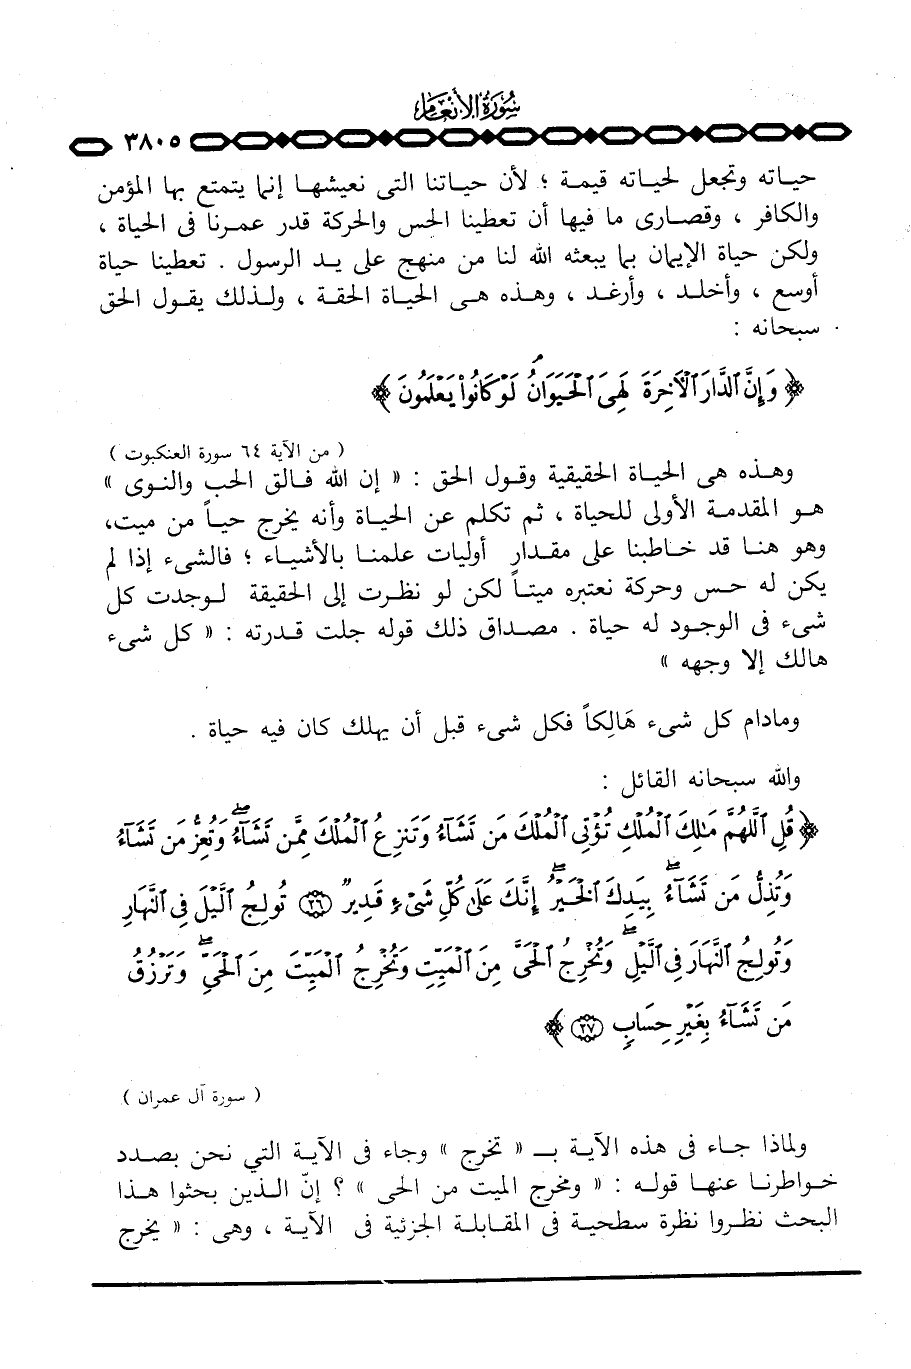 سُورَةُ الأَنْعَامِ
٣٨٠٥
حياته وتجعل لحياته قيمة ؛ لأن حياتنا التى نعيشها إنما يتمتع بها المؤمن
والكافر ، وقصارى ما فيها أن تعطينا الحس والحركة قدر عمرنا فى الحياة ،
ولكن حياة الإيمان بما يبعثه الله لنا من منهج على يد الرسول . تعطينا حياة
أوسع ، وأخلد ، وأرغد ، وهذه هى الحياة الحقة ، ولذلك يقول الحق
سبحانه :
﴿ وَإِنَّ ٱلدَّارَ ٱلْآخِرَةَ لَهِىَ ٱلْحَيَوَانُ لَوْ كَانُوا۟ يَعْلَمُونَ ﴾
( من الآية ٦٤ سورة العنكبوت )
وهذه هى الحياة الحقيقية وقول الحق : « إن الله فالق الحب والنوى »
هو المقدمة الأولى للحياة ، ثم تكلم عن الحياة وأنه يخرج حياً من ميت،
وهو هنا قد خاطبنا على مقدار أوليات علمنا بالأشياء ؛ فالشىء إذا لم
يكن له حس وحركة نعتبره ميتاً لكن لو نظرت إلى الحقيقة لوجدت كل
شىء فى الوجود له حياة . مصداق ذلك قوله جلت قدرته : « كل شىء
هالك إلا وجهه »
ومادام كل شىء هَالِكاً فكل شىء قبل أن يهلك كان فيه حياة .
والله سبحانه القائل :
﴿ قُلِ ٱللَّهُمَّ مَـٰلِكَ ٱلْمُلْكِ تُؤْتِى ٱلْمُلْكَ مَن تَشَآءُ وَتَنزِعُ ٱلْمُلْكَ مِمَّن تَشَآءُ ۖ وَتُعِزُّ مَن تَشَآءُ
وَتُذِلُّ مَن تَشَآءُ ۖ بِيَدِكَ ٱلْخَيْرُ ۖ إِنَّكَ عَلَىٰ كُلِّ شَىْءٍ قَدِيرٌ ۝٢٦ تُولِجُ ٱلَّيْلَ فِى ٱلنَّهَارِ
وَتُولِجُ ٱلنَّهَارَ فِى ٱلَّيْلِ ۖ وَتُخْرِجُ ٱلْحَىَّ مِنَ ٱلْمَيِّتِ وَتُخْرِجُ ٱلْمَيِّتَ مِنَ ٱلْحَىِّ ۖ وَتَرْزُقُ
مَن تَشَآءُ بِغَيْرِ حِسَابٍ ۝٢٧ ﴾
( سورة آل عمران )
ولماذا جاء فى هذه الآية بـ « تخرج » وجاء فى الآية التي نحن بصدد
خواطرنا عنها قوله : « ومخرج الميت من الحى » ؟ إنّ الذين بحثوا هذا
البحث نظروا نظرة سطحية فى المقابلة الجزئية فى الآية ، وهى : « يخرج